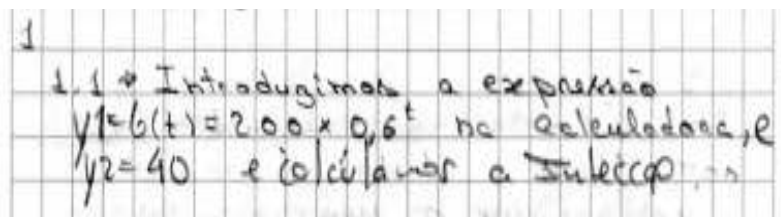 1
1.1 * Introduzimos a expressão
y1=b(t)=200×0,6^t na calculadora, e
y2=40 e calculamos a